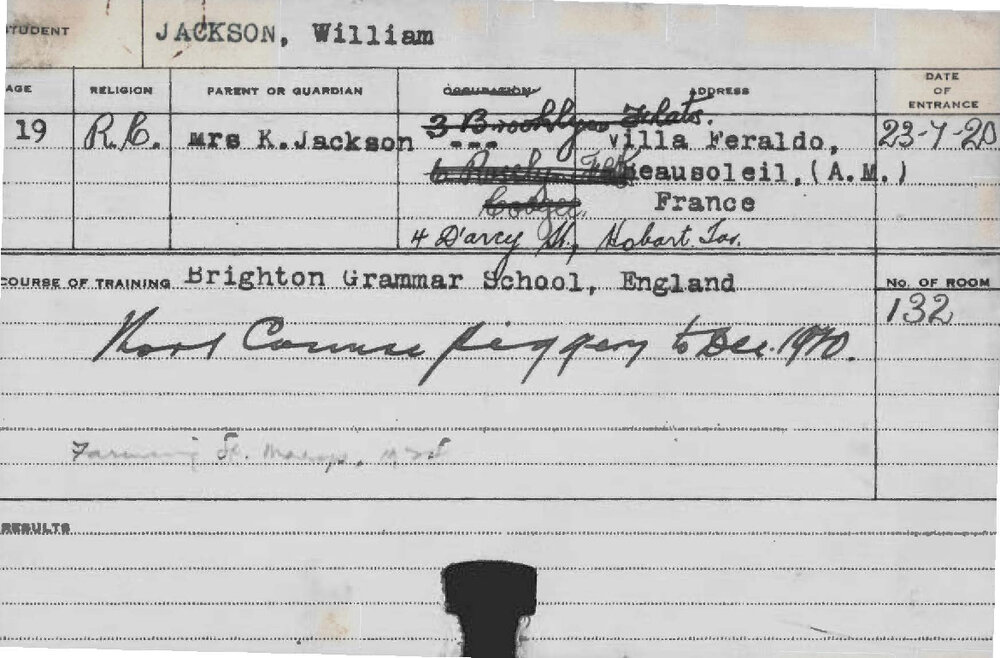 STUDENT JACKSON, William
AGE RELIGION PARENT OR GUARDIAN OCCUPATION ADDRESS DATE OF ENTRANCE
3 Brooklyn Flats.
19 R.C. Mrs K.Jackson --- Villa Feraldo, 23-7-20
6 Beausoleil,(A.M.)
Coogee. France
4 D'arcy St, Hobart Tas.
COURSE OF TRAINING Brighton Grammar School, England No. OF ROOM
132
Course piggery to Dec. 1920.
Farming
RESULTS